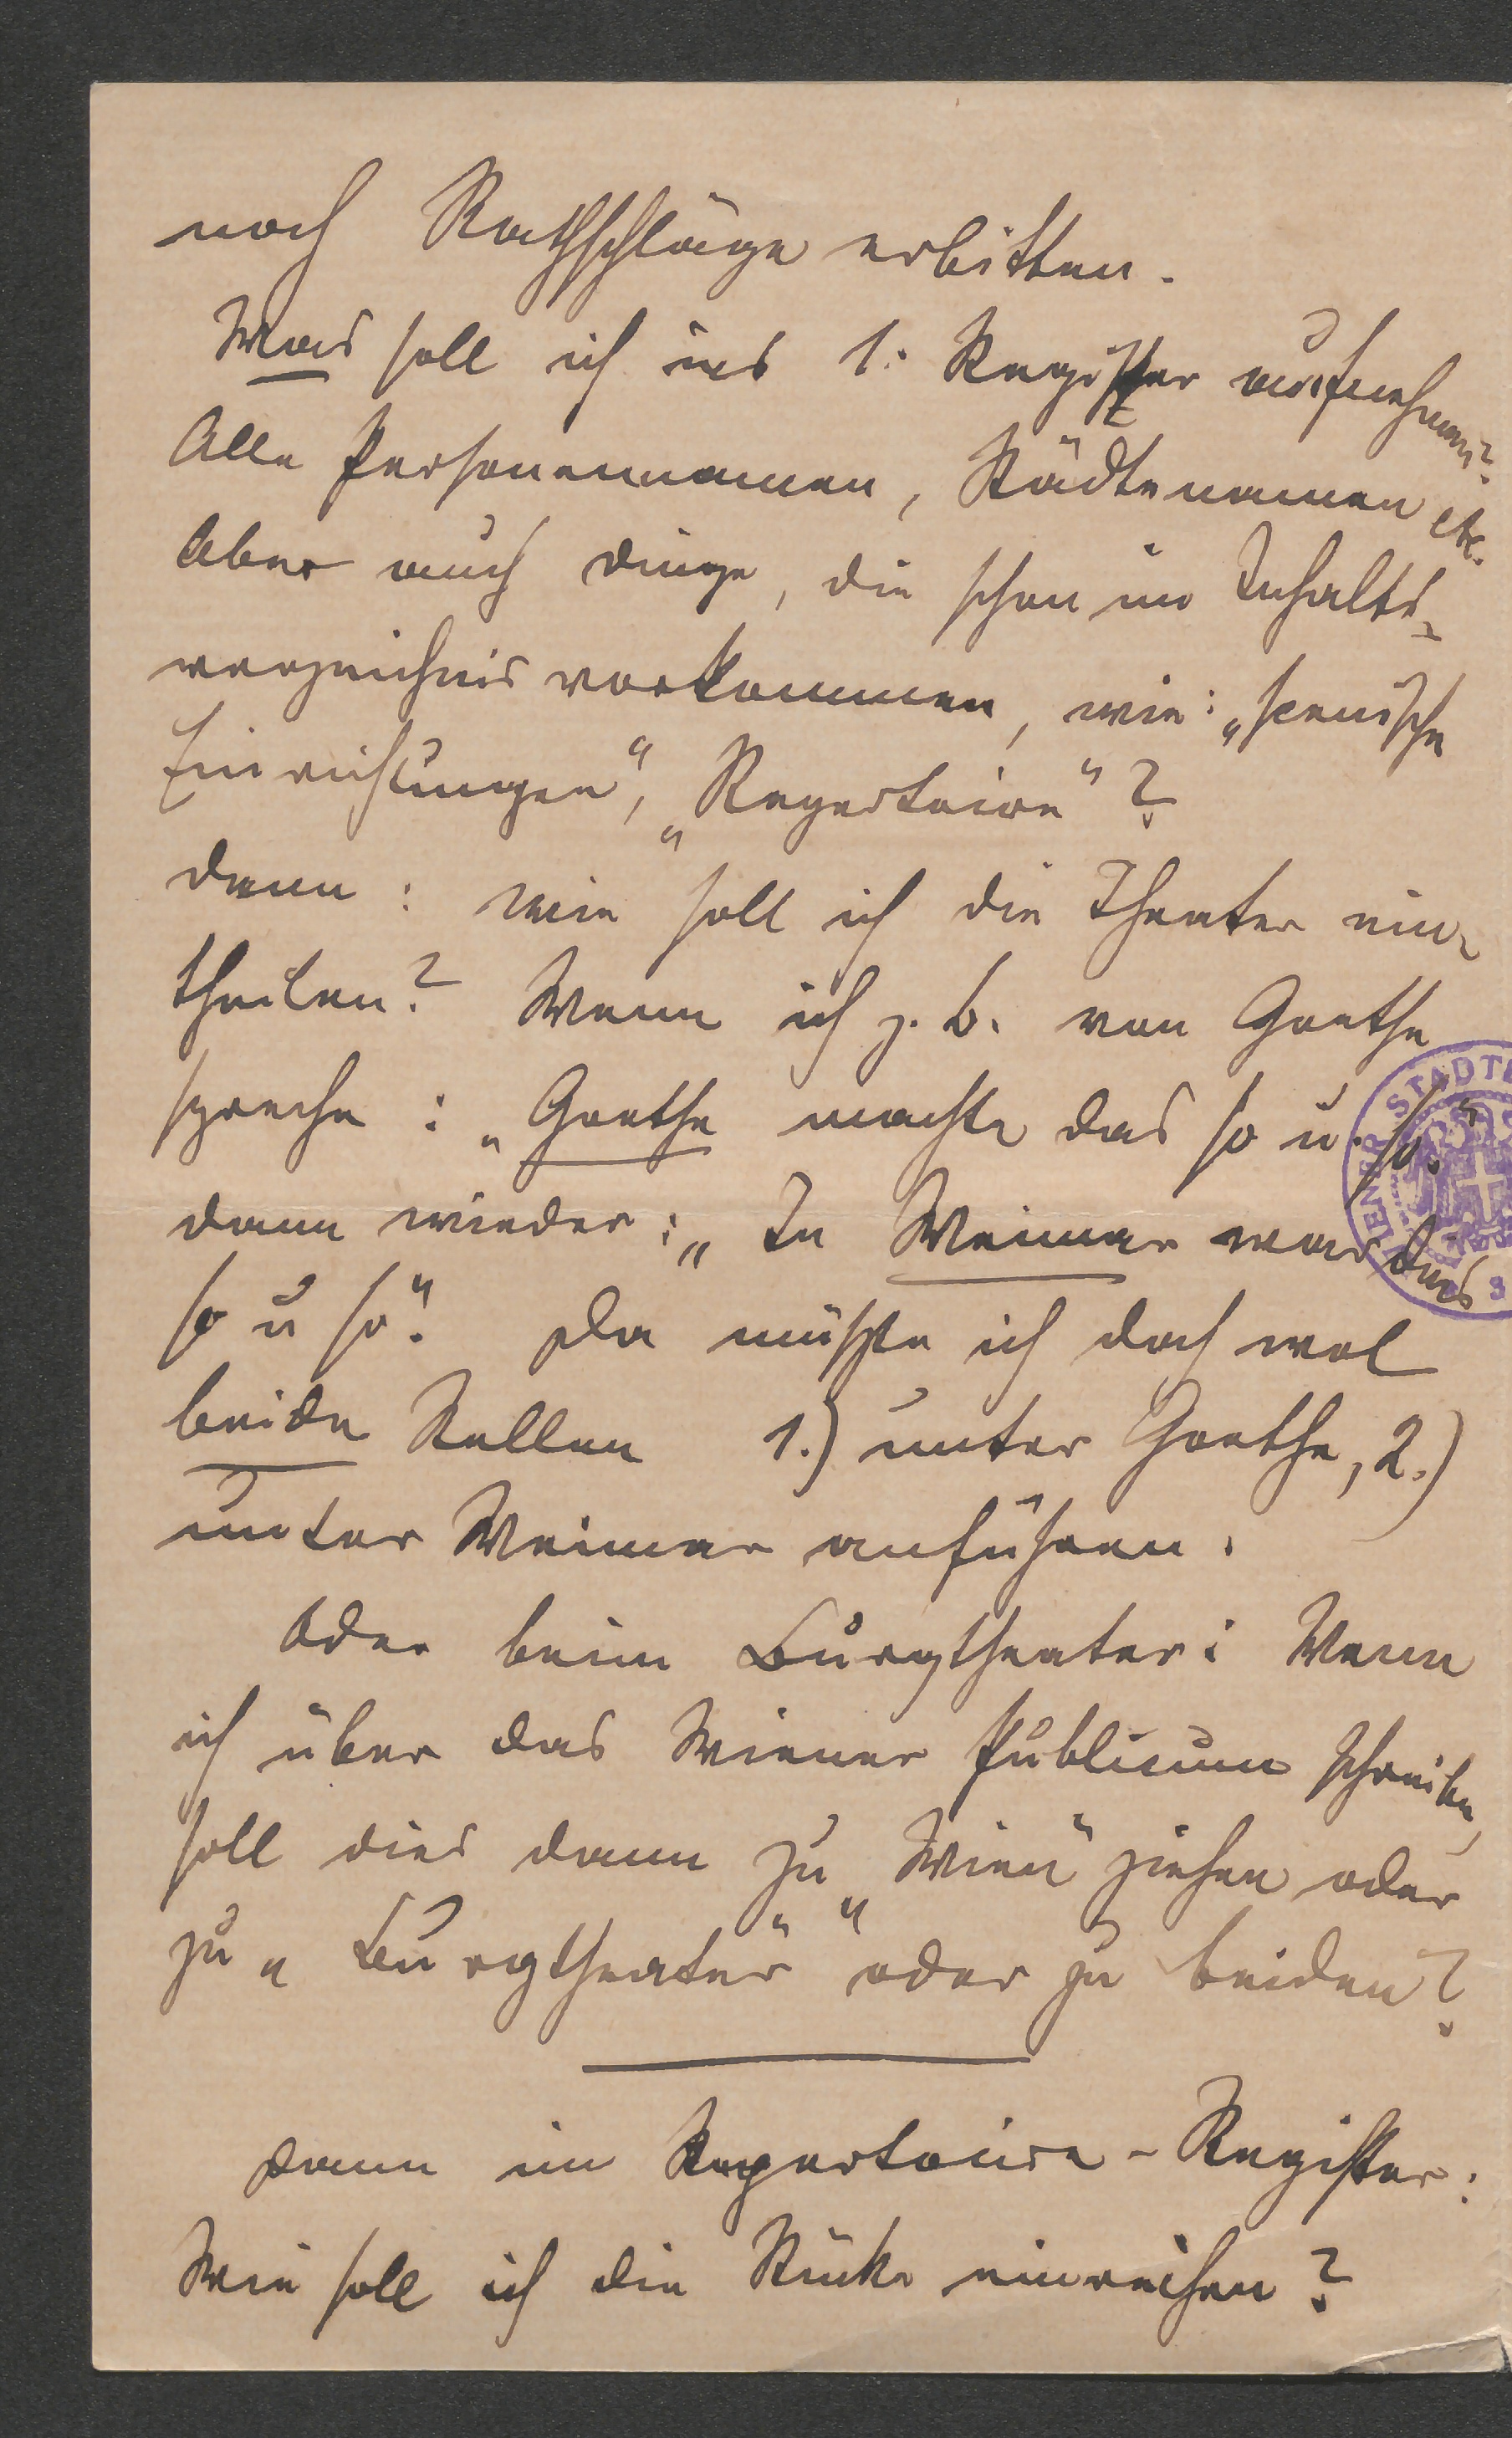 noch Rathschläge erbitten.
Was soll ich ins 1. Register aufnehmen?
Alle Personennamen, Städtenamen etc.
Aber auch Dinge, die schon im Inhalts-
verzeichnis vorkommen, wie: „scenische
Einrichtungen“, „Repertoire“?
Dann: wie soll ich die Theater ein-
theilen? Wenn ich z. B. von Goethe
spreche: „Goethe machte das so u. so.“
dann wieder: „In Weimar war das
so u so“. Da müßte ich doch wol
beide Stellen 1.) unter Goethe, 2.)
unter Weimar anführen.
Oder beim Burgtheater: Wenn
ich über das Wiener Publicum schreibe,
soll dies dann zu „Wien“ ziehen oder
zu „Burgtheater“ oder zu beiden?
Dann im Repertoire-Register:
Wie soll ich die Stücke einreihen?
WIENER STÄDT